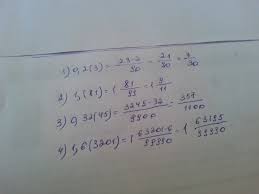 1) 0,2(3) = 23-2/90 = 21/90 = 7/30
2) 1,(81) = 1 81/99 = 1 9/11
3) 0,32(45) = 3245-32/9900 = 357/1100
4) 1,6(3201) = 1 63201-6/99990 = 1 63195/99990